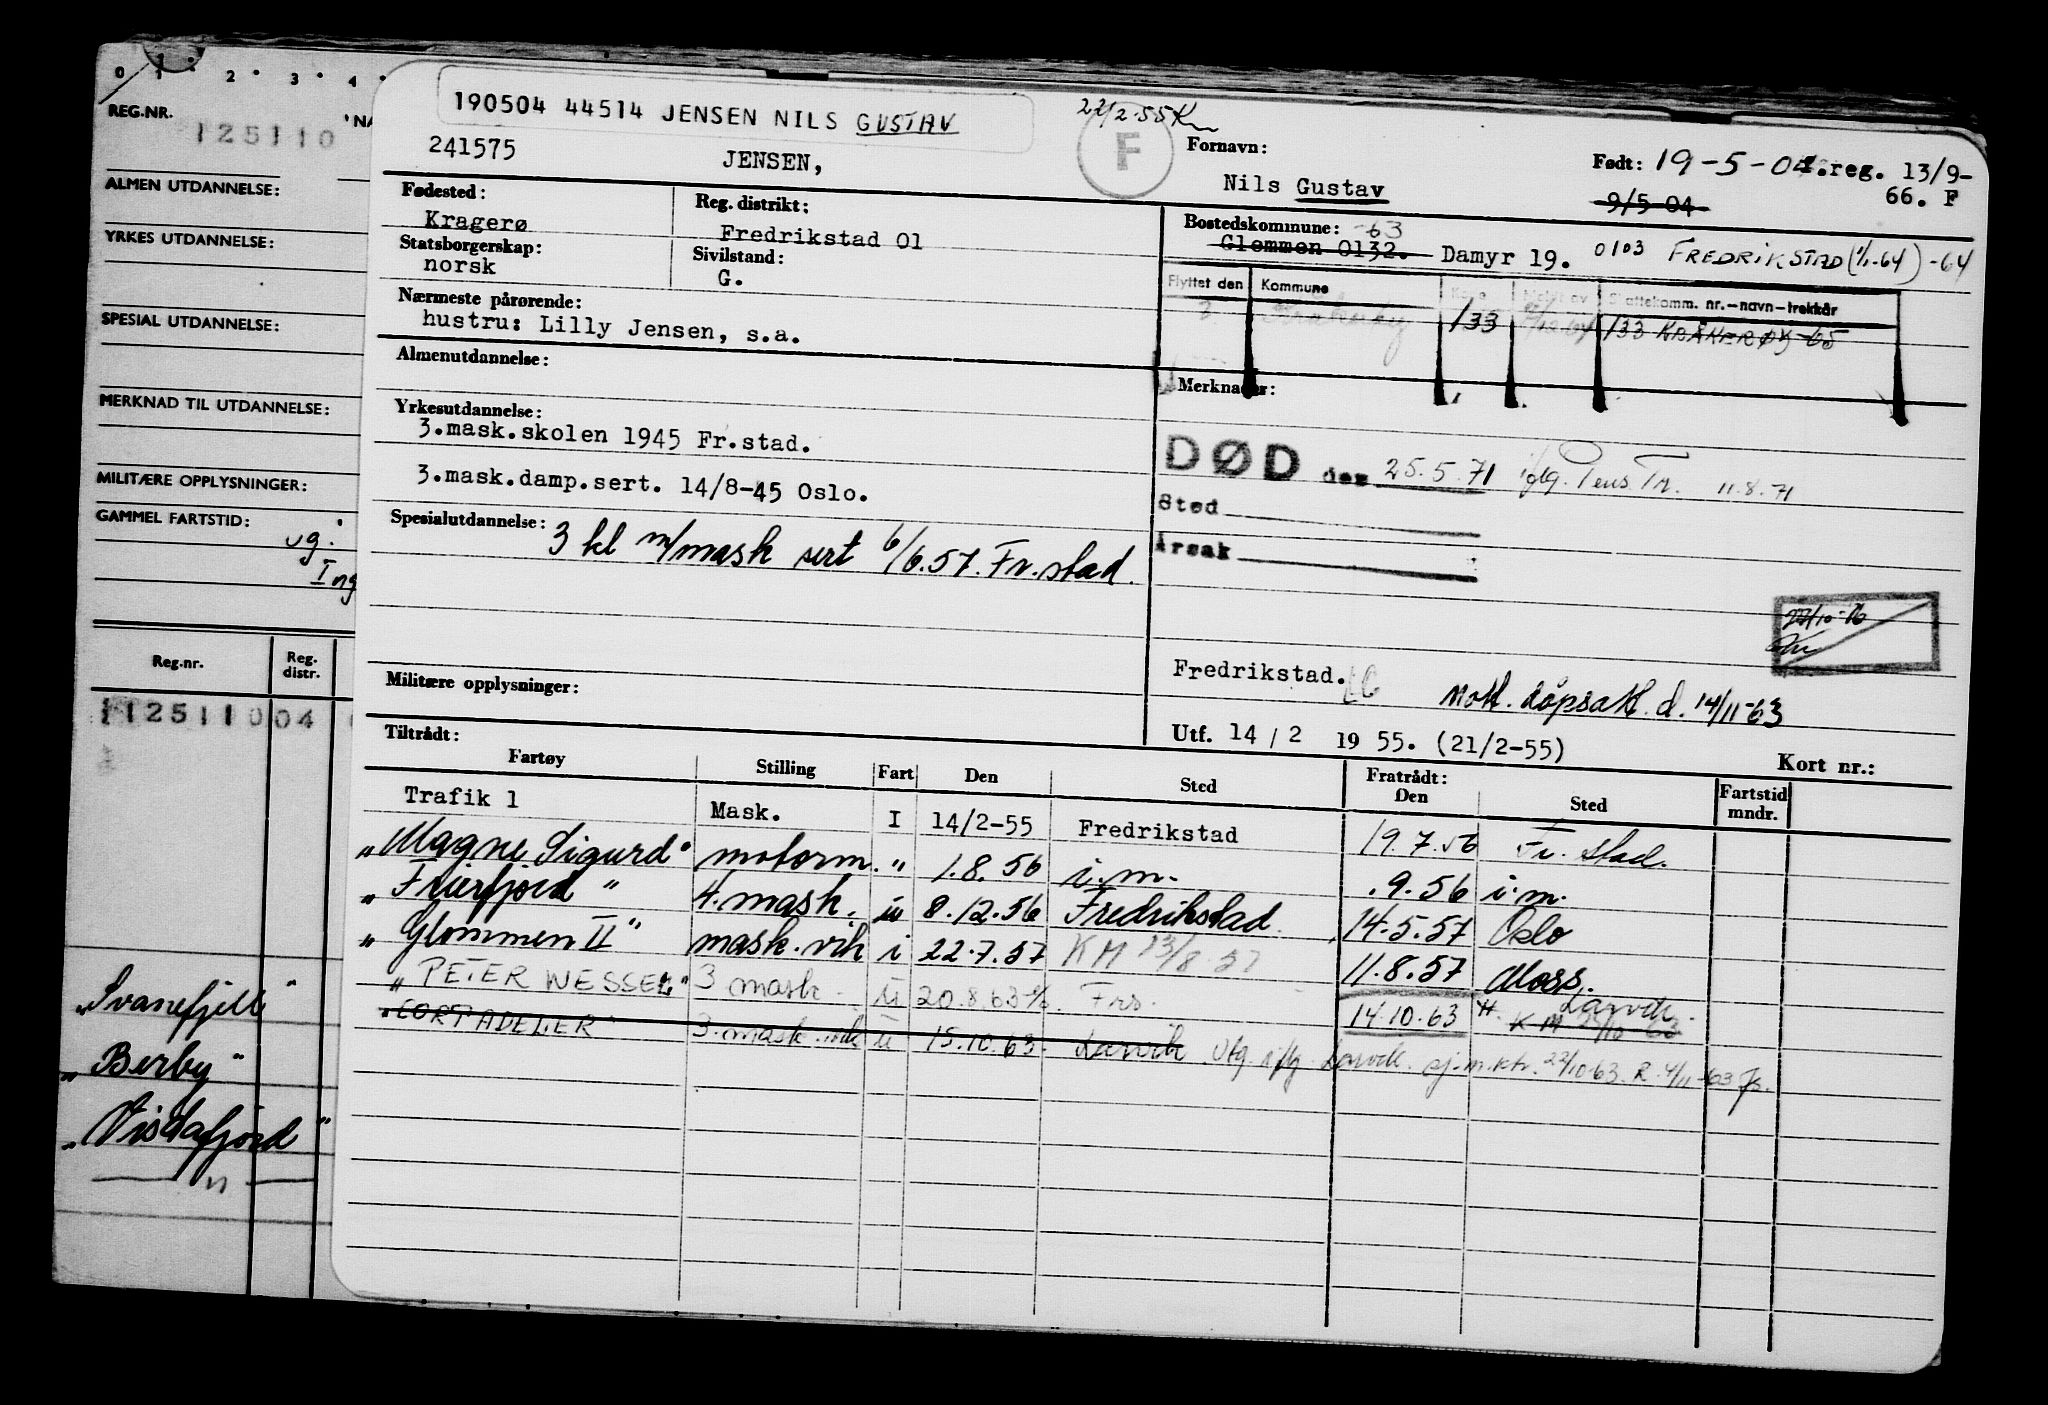 0 1 2 3 4
REG.NR.
125110
ALMEN UTDANNELSE:
YRKES UTDANNELSE:
SPESIAL UTDANNELSE:
MERKNAD TIL UTDANNELSE:
MILITÆRE OPPLYSNINGER:
GAMMEL FARTSTID:
vg.
Ing
Reg.nr. Reg. distr.
112511004
"Svanefjell"
"Berby"
"Vistafjord"
190504 44514 JENSEN NILS GUSTAV
241575 JENSEN,
F
Fornavn:
Nils Gustav
Født: 19-5-04 reg. 13/9-
9/5-04 66. F
Fødested:
Kragerø
Reg. distrikt:
Fredrikstad 01
Bostedskommune: -63
Glemmen 0132. Damyr 19. 0103 FREDRIKSTAD (1/1-64) -64
Statsborgerskap:
norsk
Sivilstand:
G.
Flyttet den Kommune Skattekomm. nr.–navn–trekkår
133 133 KRÅKERØY 65
Nærmeste pårørende:
hustru: Lilly Jensen, s.a.
Almenutdannelse:
Merknader:
Yrkesutdannelse:
3.mask.skolen 1945 Fr.stad.
3.mask.damp.sert. 14/8-45 Oslo.
DØD den 25.5.71 iflg. Pens.Tr. 11.8.71
Sted
Årsak
Spesialutdannelse:
3 kl m/mask sert 6/6.57. Fr.stad.
Militære opplysninger:
Fredrikstad.
14/11-63
Utf. 14 / 2 19 55. (21/2-55)
Kort nr.:
Tiltrådt:
Fratrådt:
Fartøy Stilling Fart Den Sted Den Sted Fartstid mndr.
Trafik 1 Mask. I 14/2-55 Fredrikstad 19.7.56 Fr.stad.
"Magne Sigurd" motorm. " 1.8.56 i.m. .9.56 i.m.
"Frierfjord" 4.mask. u 8.12.56 Fredrikstad. 14.5.57 Oslo
"Glommen II" mask.vik i 22.7.57 KM 13/8.57 11.8.57 Moss.
"PETER WESSEL" 3 mask. u 20.8.63 Frs. 14.10.63 Larvik.
"CORT ADELER" 3.mask. u 15.10.63. Larvik Utg. iflg. Larvik. sj.m.ktr. 22/10-63. R. 4/11-63